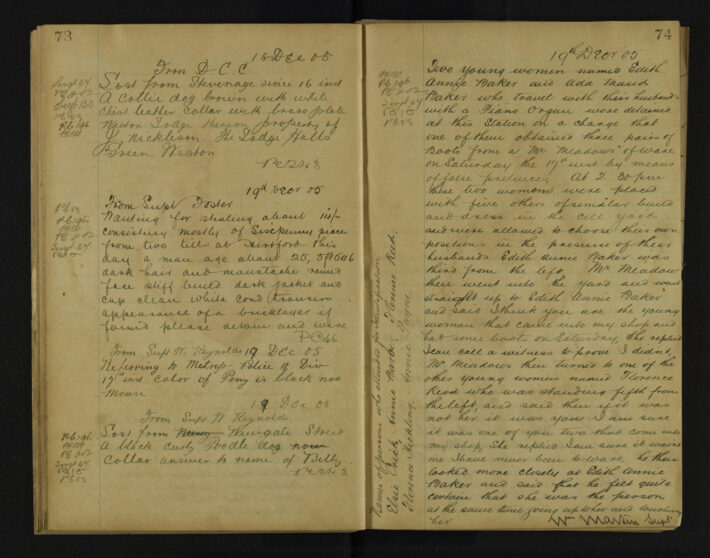 73
18 Dec 05
From D. C. C
Lost from Stevenage since 16 inst
A Collie dog brown with white
chest leather collar with brass plate
Weston Lodge property of
Nicklison The Lodge Halls
Green Weston
PC 242
19th Decr 05
From Supt Foster
Wanting for stealing about
consisting mostly of Sixpenny pieces
from two tills at Hertford this
day a man age about 25, 5ft 5 or 6
dark hair and moustache round
face stiff build dark jacket and
cap clean white cord trousers
appearance of a bricklayer if
found please detain and wire
PC 66
From Supt W. Reynolds 19 Dec 05
Referring to Metrop Police G Div
17th inst color of Pony is black not
Mouse
19 Dec 05
From Supt W Reynolds
Lost from Newgate Street
A black curly Poodle dog
collar answer to name of Billy
74
19th Decr 05
Two young women named Edith
Annie Baker and Ada Maud
Baker who travel with their husbands
with a Piano Organ were detained
at this Station on a charge that
one of them obtained three pairs of
Boots from a Mr Meadows of Ware
on Saturday the 17th inst by means
of false pretences At 2.30 pm
these two women were placed
with five others of similar build
and dress in the cell yard
and were allowed to choose their own
positions in the presence of their
husbands Edith Annie Baker was
third from the left Mr Meadows
then went into the yard and went
straight up to Edith Annie Baker
and said I think you are the young
woman that came into my shop and
had some boots on Saturday. She replied
I can call a witness to prove I didnt,
Mr Meadows then turned to one of the
other young women named Florence
Reed who was standing fifth from
the left, and said then if it was
not her it was you I am sure
it was one of you two that come into
my shop, She replied I am sure it wasnt
me I have never been to Ware, he then
looked more closely at Edith Annie
Baker and said that he felt quite
certain that she was the person
at the same time going up to her and touching
her
Wm Martin Supt
Names of persons who attended for Identification
Elsie Chick, Annie Baron, Florence Reed,
Florence Redding, Annie Payne,